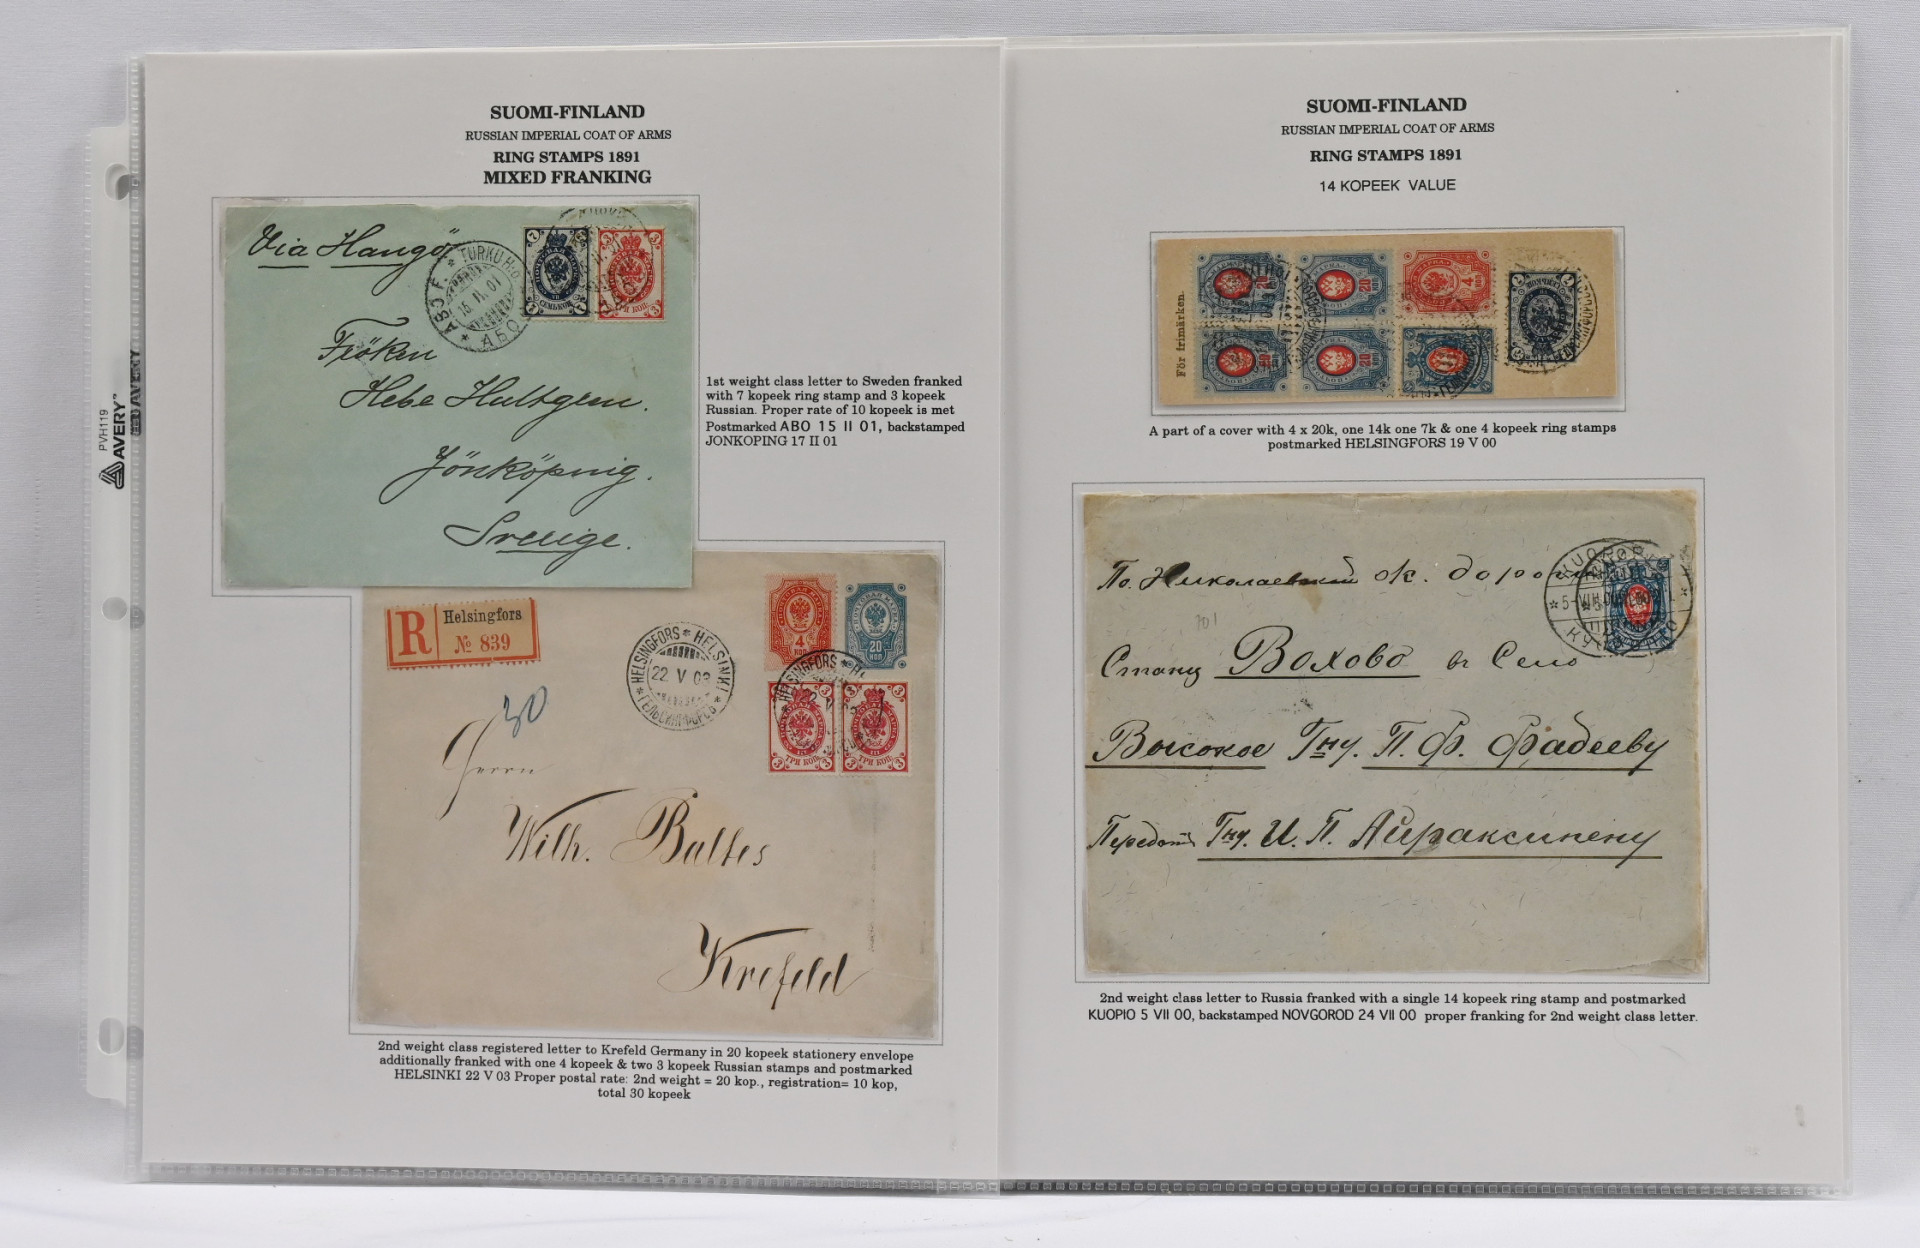 SUOMI-FINLAND
RUSSIAN IMPERIAL COAT OF ARMS
RING STAMPS 1891
MIXED FRANKING
Via Hangö
ABO F. * TURKU H:o
15.II.01
* АБО
7
СЕМЬ КОП
3
ТРИ КОП.
Fröken
Hebe Hultgren.
Jönköping.
Sverige.
1st weight class letter to Sweden franked
with 7 kopeek ring stamp and 3 kopeek
Russian. Proper rate of 10 kopeek is met
Postmarked ABO 15 II 01, backstamped
JONKOPING 17 II 01
PVH119
AVERY™
R
Helsingfors
№ 839
HELSINGFORS * HELSINKI
22 V 03
ГЕЛЬСИНГФОРСЪ
4 КОП
20 КОП
3 ТРИ КОП. 3
3 ТРИ КОП. 3
30
Herrn
Wilh. Baltes
Krefeld
2nd weight class registered letter to Krefeld Germany in 20 kopeek stationery envelope
additionally franked with one 4 kopeek & two 3 kopeek Russian stamps and postmarked
HELSINKI 22 V 03 Proper postal rate: 2nd weight = 20 kop., registration= 10 kop,
total 30 kopeek
SUOMI-FINLAND
RUSSIAN IMPERIAL COAT OF ARMS
RING STAMPS 1891
14 KOPEEK VALUE
För frimärken.
20
20
4
20
20
A part of a cover with 4 x 20k, one 14k one 7k & one 4 kopeek ring stamps
postmarked HELSINGFORS 19 V 00
По Николаевской ж. дороге
KUOPIO
КУОПІО
Станц Волово въ Село
Высокое Гну. П. Ф. Фадееву
Передать Гну. И. П. Айраксинену
2nd weight class letter to Russia franked with a single 14 kopeek ring stamp and postmarked
KUOPIO 5 VII 00, backstamped NOVGOROD 24 VII 00 proper franking for 2nd weight class letter.